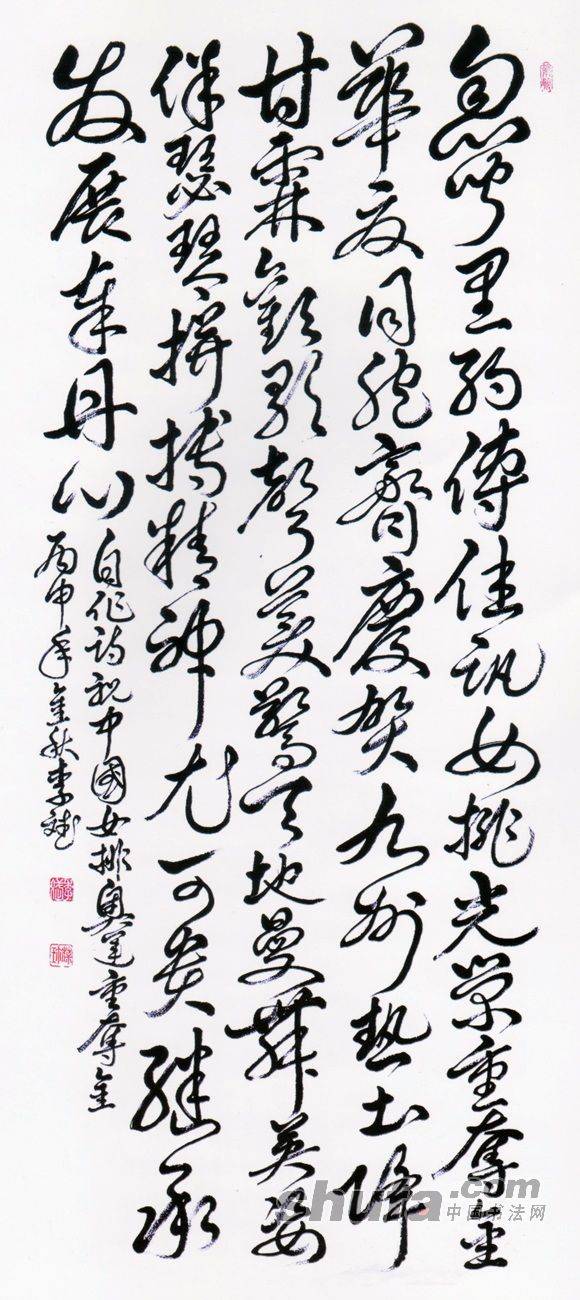 忽闻里约传佳讯女排光荣重夺金
华夏同胞齐庆贺九州热土降
甘霖欢歌声美惊天地曼舞英姿
伴瑟琴拼搏精神尤可贵继承
发展奉丹心
自作诗祝中国女排奥运重夺金
丙申年金秋李斌
shufa.com
中国书法网